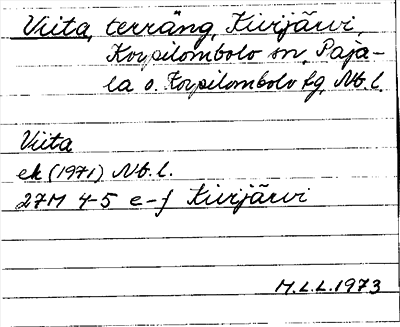 Viita, terräng, Kivijärvi,
Korpilombolo sn, Paja-
la o. Korpilombolo tg, Nb. l.
Viita
ek (1971) Nb. l.
27M 4-5 e-f Kivijärvi
M.L.L. 1973